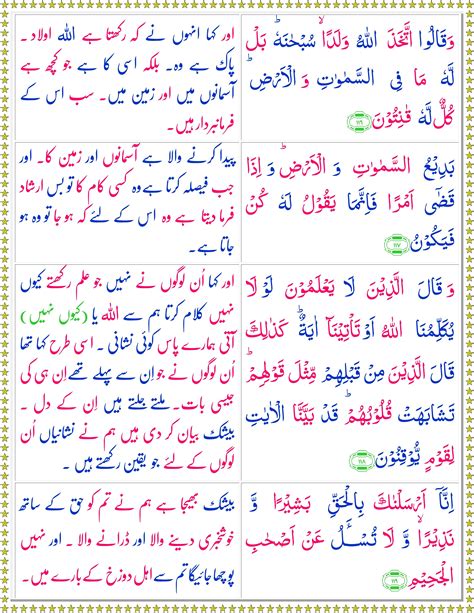 وَقَالُوا اتَّخَذَ اللّٰهُ وَلَدًا ۙ سُبْحٰنَهٗ ؕ بَلْ
لَّهٗ مَا فِی السَّمٰوٰتِ وَ الْاَرْضِ ؕ
كُلٌّ لَّهٗ قٰنِتُوْنَ ﴿۱۱۶﴾
اور کہا انہوں نے کہ رکھتا ہے اللہ اولاد۔
پاک ہے وہ۔ بلکہ اسی کا ہے جو کچھ ہے
آسمانوں میں اور زمین میں۔ سب اس کے
فرمانبردار ہیں۔
بَدِیْعُ السَّمٰوٰتِ وَ الْاَرْضِ ؕ وَ اِذَا
قَضٰۤی اَمْرًا فَاِنَّمَا یَقُوْلُ لَهٗ كُنْ
فَیَكُوْنُ ﴿۱۱۷﴾
پیدا کرنے والا ہے آسمانوں اور زمین کا۔ اور
جب فیصلہ کرتا ہے وہ کسی کام کا تو بس ارشاد
فرما دیتا ہے وہ اس کے لئے کہ ہو جا تو وہ ہو
جاتا ہے۔
وَ قَالَ الَّذِیْنَ لَا یَعْلَمُوْنَ لَوْ لَا
یُكَلِّمُنَا اللّٰهُ اَوْ تَاْتِیْنَاۤ اٰیَةٌ ؕ كَذٰلِكَ
قَالَ الَّذِیْنَ مِنْ قَبْلِهِمْ مِّثْلَ قَوْلِهِمْ ؕ
تَشَابَهَتْ قُلُوْبُهُمْ ؕ قَدْ بَیَّنَّا الْاٰیٰتِ
لِقَوْمٍ یُّوْقِنُوْنَ ﴿۱۱۸﴾
اور کہا اُن لوگوں نے نہیں جو علم رکھتے کیوں
نہیں کلام کرتا ہم سے اللہ یا (کیوں نہیں)
آتی ہمارے پاس کوئی نشانی۔ اسی طرح کہا تھا
اُن لوگوں نے جو اِن سے پہلے تھے اِن ہی کی
جیسی بات۔ ملتے جلتے ہیں اِن کے دل۔
بیشک بیان کر دی ہیں ہم نے نشانیاں اُن
لوگوں کے لئے جو یقین رکھتے ہیں۔
اِنَّاۤ اَرْسَلْنٰكَ بِالْحَقِّ بَشِیْرًا وَّ
نَذِیْرًا ۙ وَّ لَا تُسْـَٔلُ عَنْ اَصْحٰبِ
الْجَحِیْمِ ﴿۱۱۹﴾
بیشک بھیجا ہے ہم نے تم کو حق کے ساتھ
خوشخبری دینے والا اور ڈرانے والا۔ اور نہیں
پوچھا جائیگا تم سے اہل دوزخ کے بارے میں۔